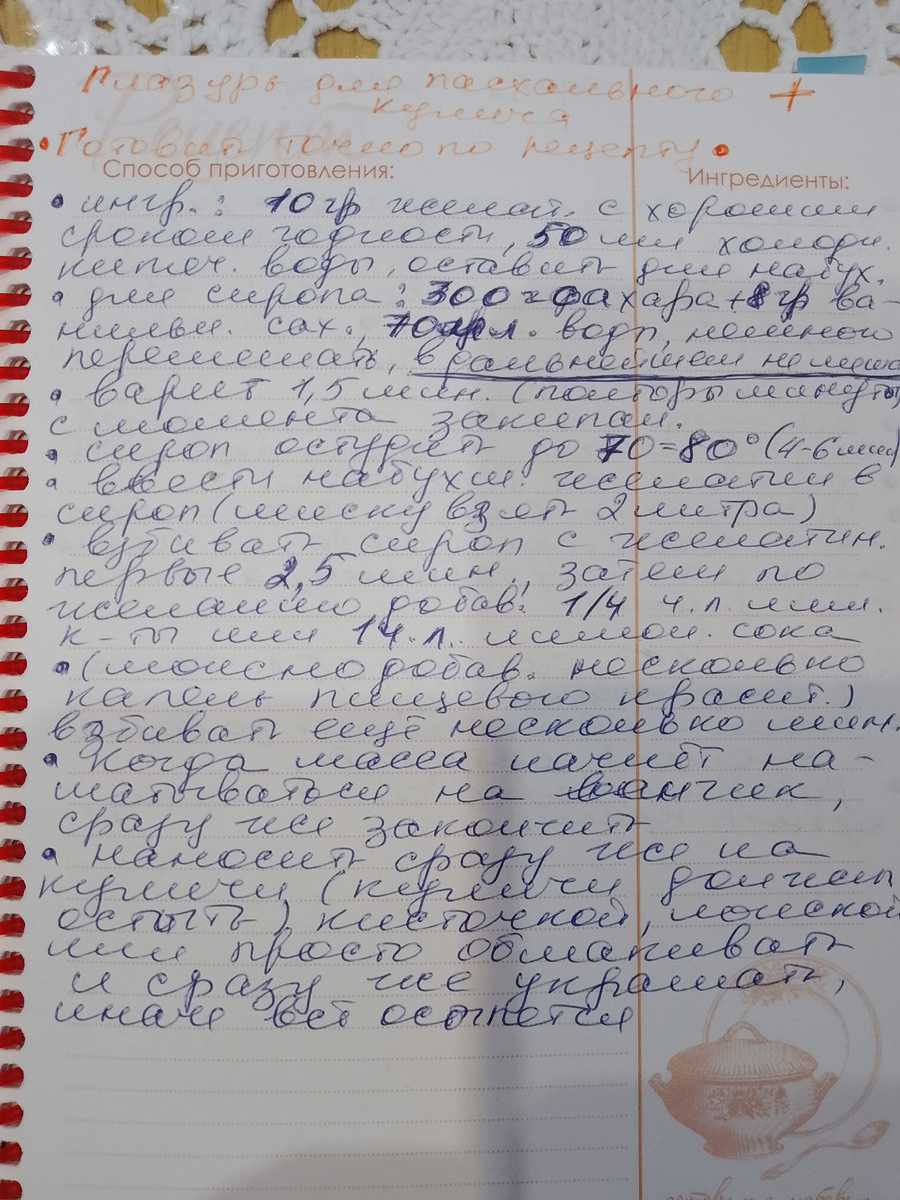 Глазурь для пасхального +
кулича
• Готовить точно по рецепту •
Способ приготовления:
Ингредиенты:
• ингр.: 10 гр желат. с хорошим
сроком годности, 50 мл холодн.
кипяч. воды, оставить для набух.
• для сиропа: 300 г сахара + 8 гр ва-
нильн. сах., 70 мл. воды, немного
перемешать, в дальнейшем не меша
• варит 1,5 мин. (полторы минуты)
с момента закипан.
• сироп остудить до 70-80° (4-6 мин)
• ввести набухш. желатин в
сироп (миску взять 2 литра)
• взбивать сироп с желатин.
первые 2,5 мин., затем по
желанию добав. 1/4 ч.л. лим.
к-ты или 1 ч.л. лимон. сока
• (можно добав. несколько
капель пищевого красит.)
взбивать ещё несколько мин.
• Когда масса начнёт на-
матываться на венчик,
сразу же закончить
• наносить сразу же на
куличи (куличи должны
остыть) кисточкой, ложкой
или просто обмакивать
и сразу же украшать,
иначе всё осыпется